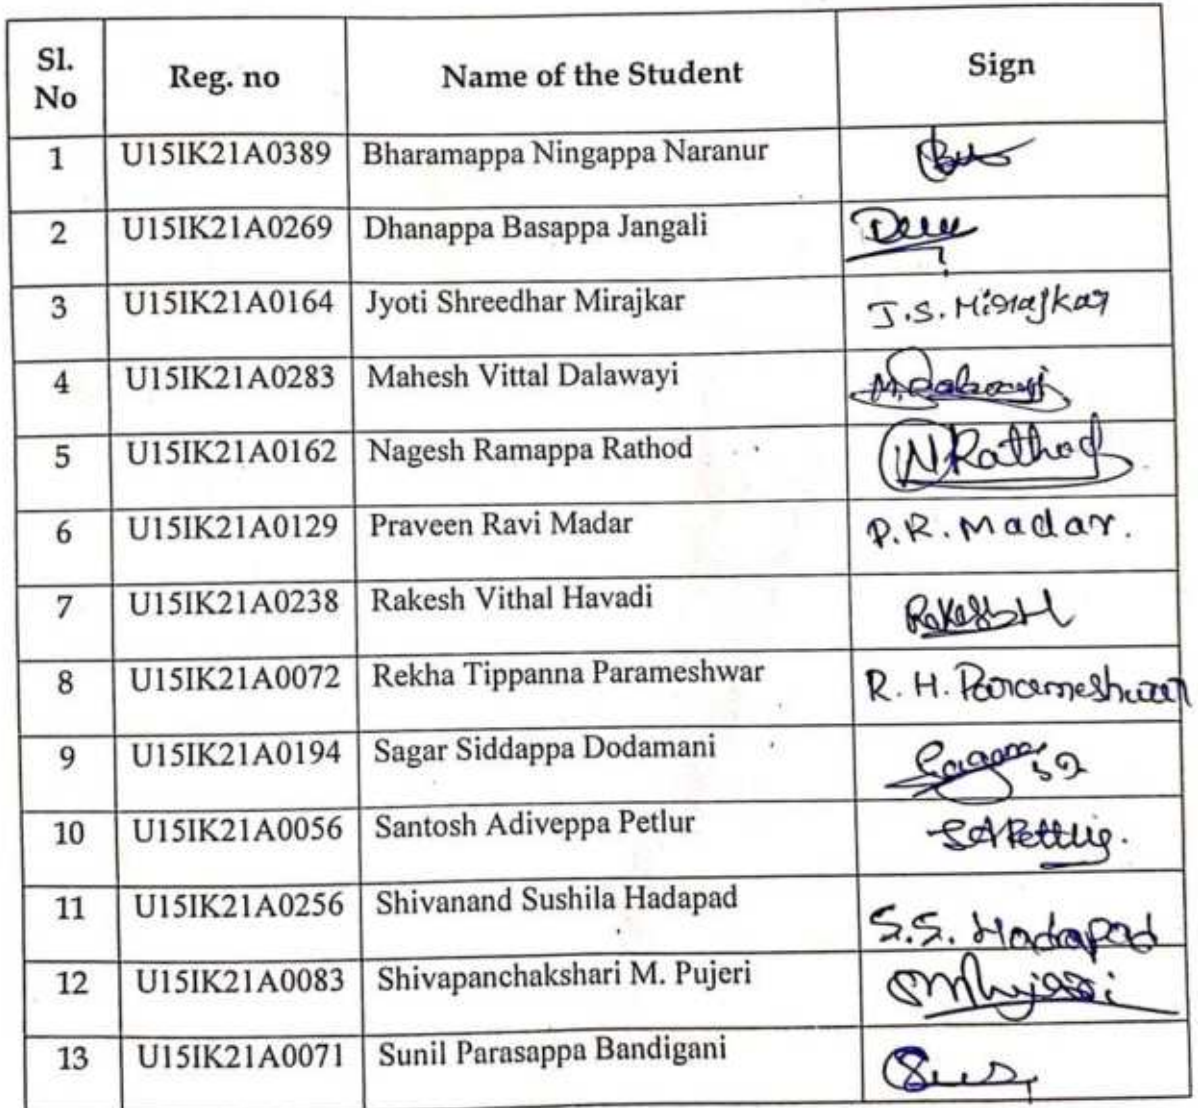 Sl. No Reg. no Name of the Student Sign
1 U15IK21A0389 Bharamappa Ningappa Naranur
2 U15IK21A0269 Dhanappa Basappa Jangali
3 U15IK21A0164 Jyoti Shreedhar Mirajkar J.S. Mirajkar
4 U15IK21A0283 Mahesh Vittal Dalawayi
5 U15IK21A0162 Nagesh Ramappa Rathod N Rathod
6 U15IK21A0129 Praveen Ravi Madar P.R. Madar.
7 U15IK21A0238 Rakesh Vithal Havadi Rakesh H
8 U15IK21A0072 Rekha Tippanna Parameshwar R. H. Parameshwar
9 U15IK21A0194 Sagar Siddappa Dodamani
10 U15IK21A0056 Santosh Adiveppa Petlur
11 U15IK21A0256 Shivanand Sushila Hadapad S.S. Hadapad
12 U15IK21A0083 Shivapanchakshari M. Pujeri
13 U15IK21A0071 Sunil Parasappa Bandigani